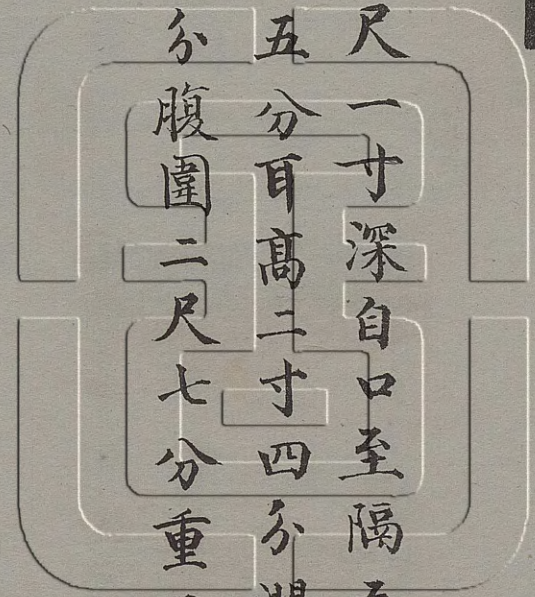 尺一寸深自口至隔
五分耳高二寸四分
分腹圍二尺七分重